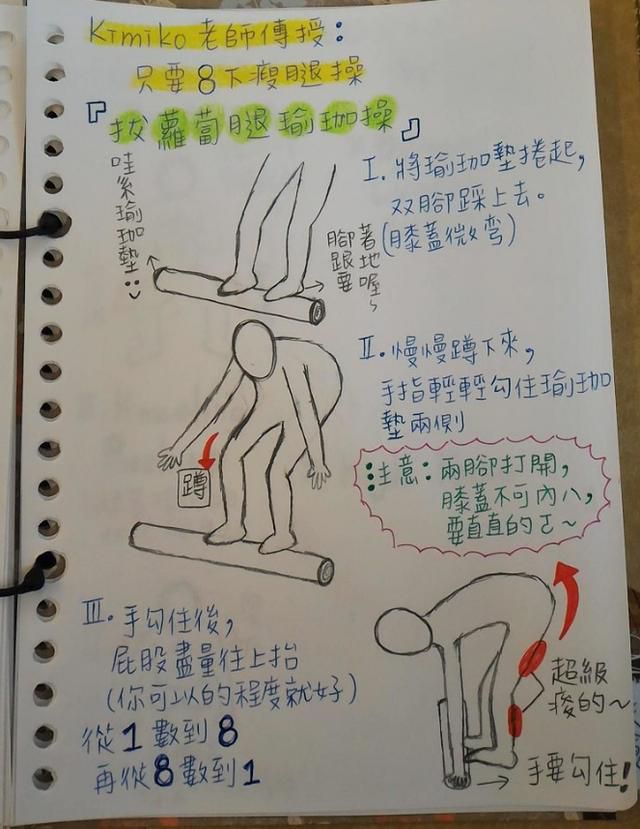 Kimiko老師傳授:
只要8下瘦腿操
『拔蘿蔔腿瑜珈操』
哇系瑜珈墊
I. 將瑜珈墊捲起,
双腳踩上去。
(膝蓋微彎)
腳跟要
著地喔~
II. 慢慢蹲下來,
手指輕輕勾住瑜珈
墊兩側
蹲
注意: 兩腳打開,
膝蓋不可內八,
要直直的ㄛ~
III. 手勾住後,
屁股盡量往上抬
(你可以的程度就好)
從1數到8
再從8數到1
超級
痠的~
手要勾住!